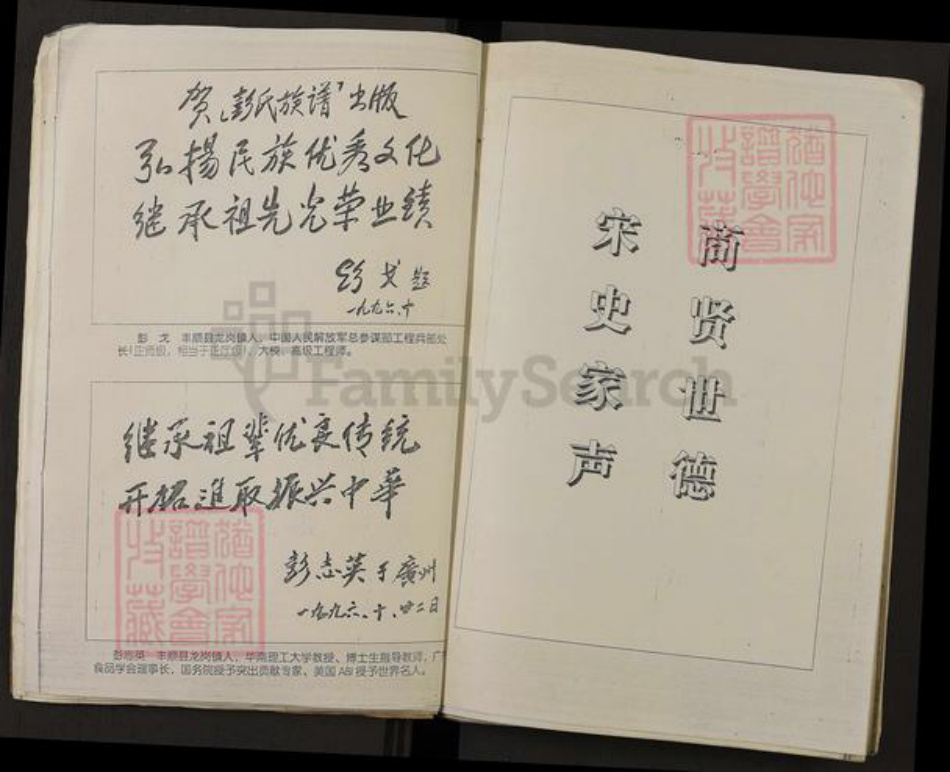 贺《彭氏族谱》出版
弘揚民族优秀文化
继承祖先光荣业绩
彭戈题
一九九六.十
彭 戈 丰顺县龙岗镇人，中国人民解放军总参谋部工程兵部处
长(正师级，相当于正厅级)、大校、高级工程师。
继承祖辈优良传统
开拓進取振兴中華
彭志英于廣州
一九九六.十.廿二日
彭志英 丰顺县龙岗镇人，华南理工大学教授、博士生指导教师，广
食品学会理事长，国务院授予突出贡献专家、美国ABI授予世界名人。
商贤世德
宋史家声
谱學會
收藏
FamilySearch